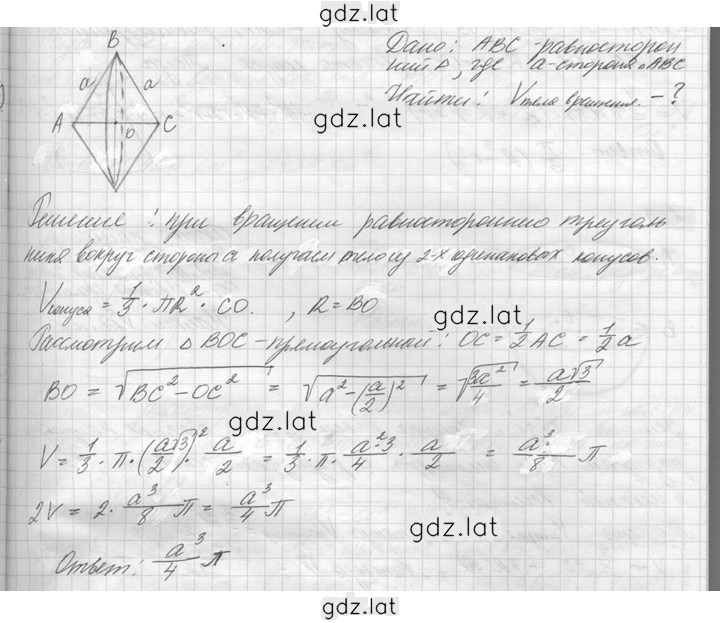 gdz.lat
B
a
a
A
O
C
gdz.lat
Дано: ABC - равносторон
ний Δ, где a - сторона ΔABC
Найти: Vтела вращения - ?
Решение: при вращении равностороннего треуголь
ника вокруг стороны a получаем тело из 2-х одинаковых конусов.
Vконуса = 1/3 · πR² · CO. , R = BO
gdz.lat
Рассмотрим Δ BOC - прямоугольный: OC = 1/2 AC = 1/2 a
BO = √(BC² - OC²) = √(a² - (a/2)²) = √(3a²/4) = a√3/2
gdz.lat
V = 1/3 · π · (a√3/2)² · a/2 = 1/3 · π · a²3/4 · a/2 = a³/8 π
2V = 2 · a³/8 π = a³/4 π
gdz.lat
Ответ: a³/4 π
gdz.lat